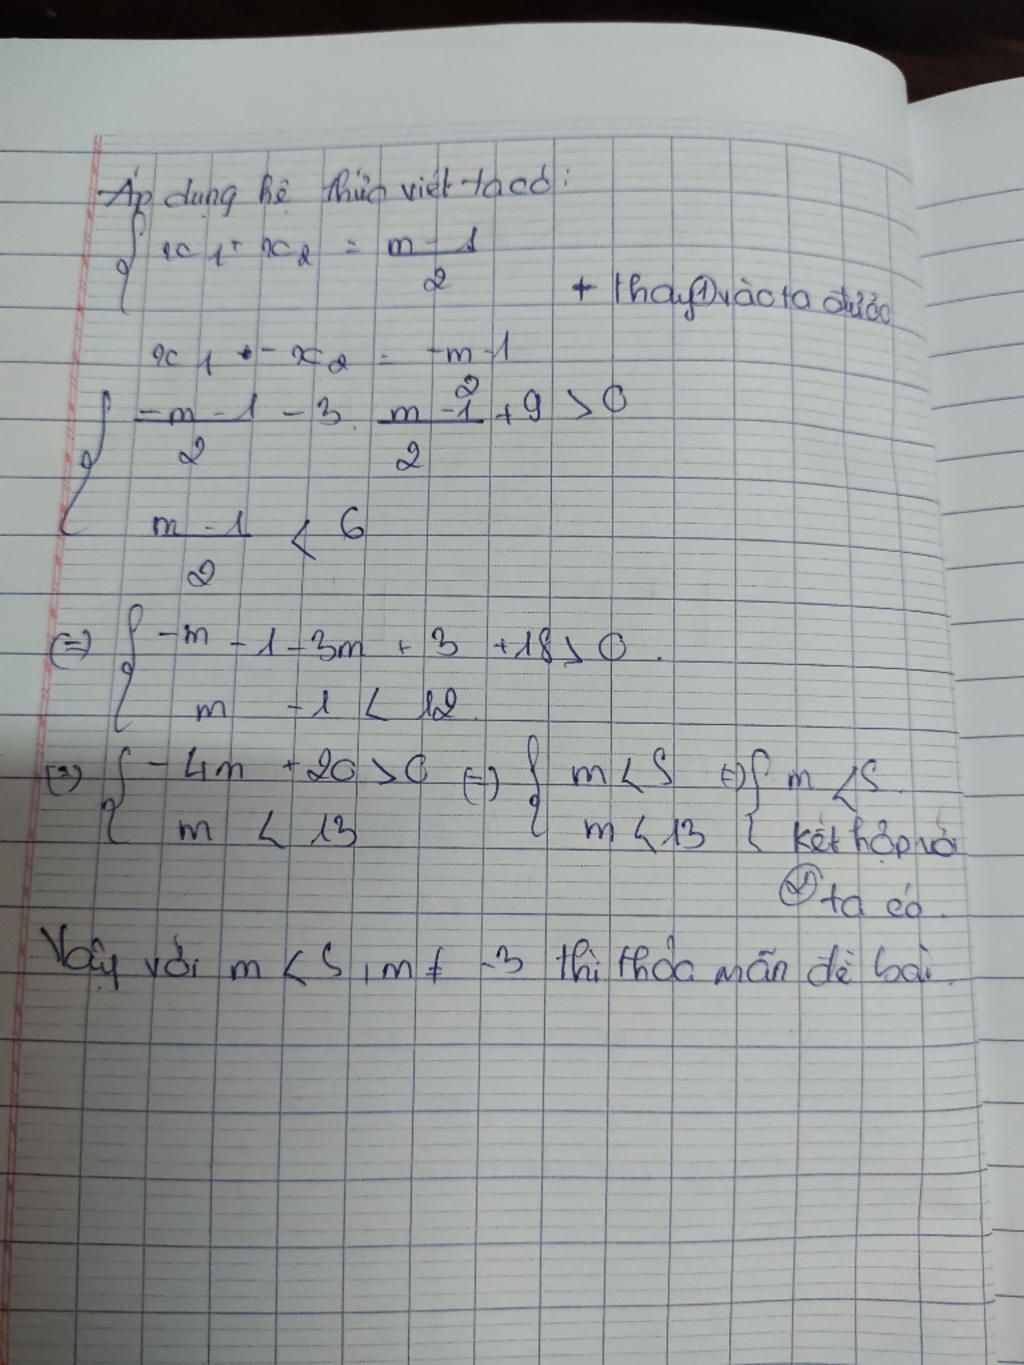 Áp dụng hệ thức viét ta có:
x1 + x2 = m - 1
2
+ thay 1 vào ta được
x1 • x2 = -m - 1
2
-m - 1 - 3. m - 1 + 9 > 0
2 2
m - 1 < 6
2
(=) { -m - 1 - 3m + 3 + 18 > 0
m - 1 < 12
(=) { -4m + 20 > 0 (=) { m < 5 (=) { m < 5
m < 13 m < 13 kết hợp với
ta có
Vậy với m < 5, m ≠ -3 thì thỏa mãn đề bài.